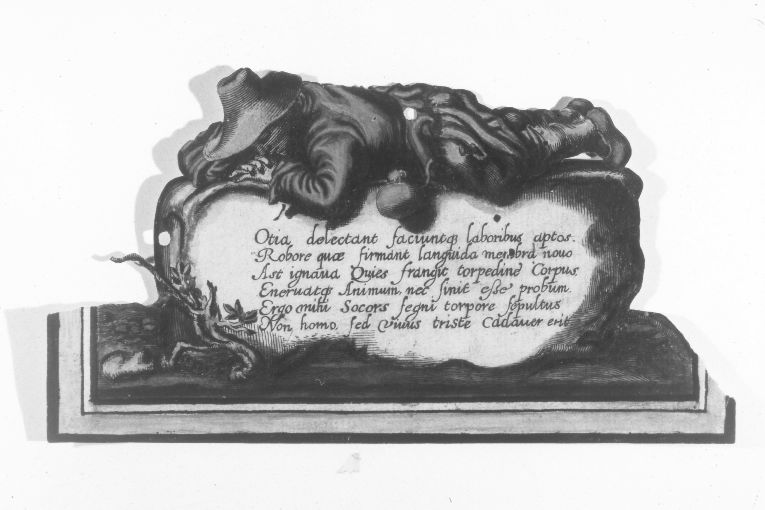 Otia delectant faciuntq₃ laboribus aptos.
Robore quæ firmant languida membra nouo
Ast ignaua Quies frangit torpedine Corpus
Eneruatq₃ Animum, nec sinit eſse probum.
Ergo mihi Socors segni torpore sepultus
Non homo, sed viuus triste Cadauer erit